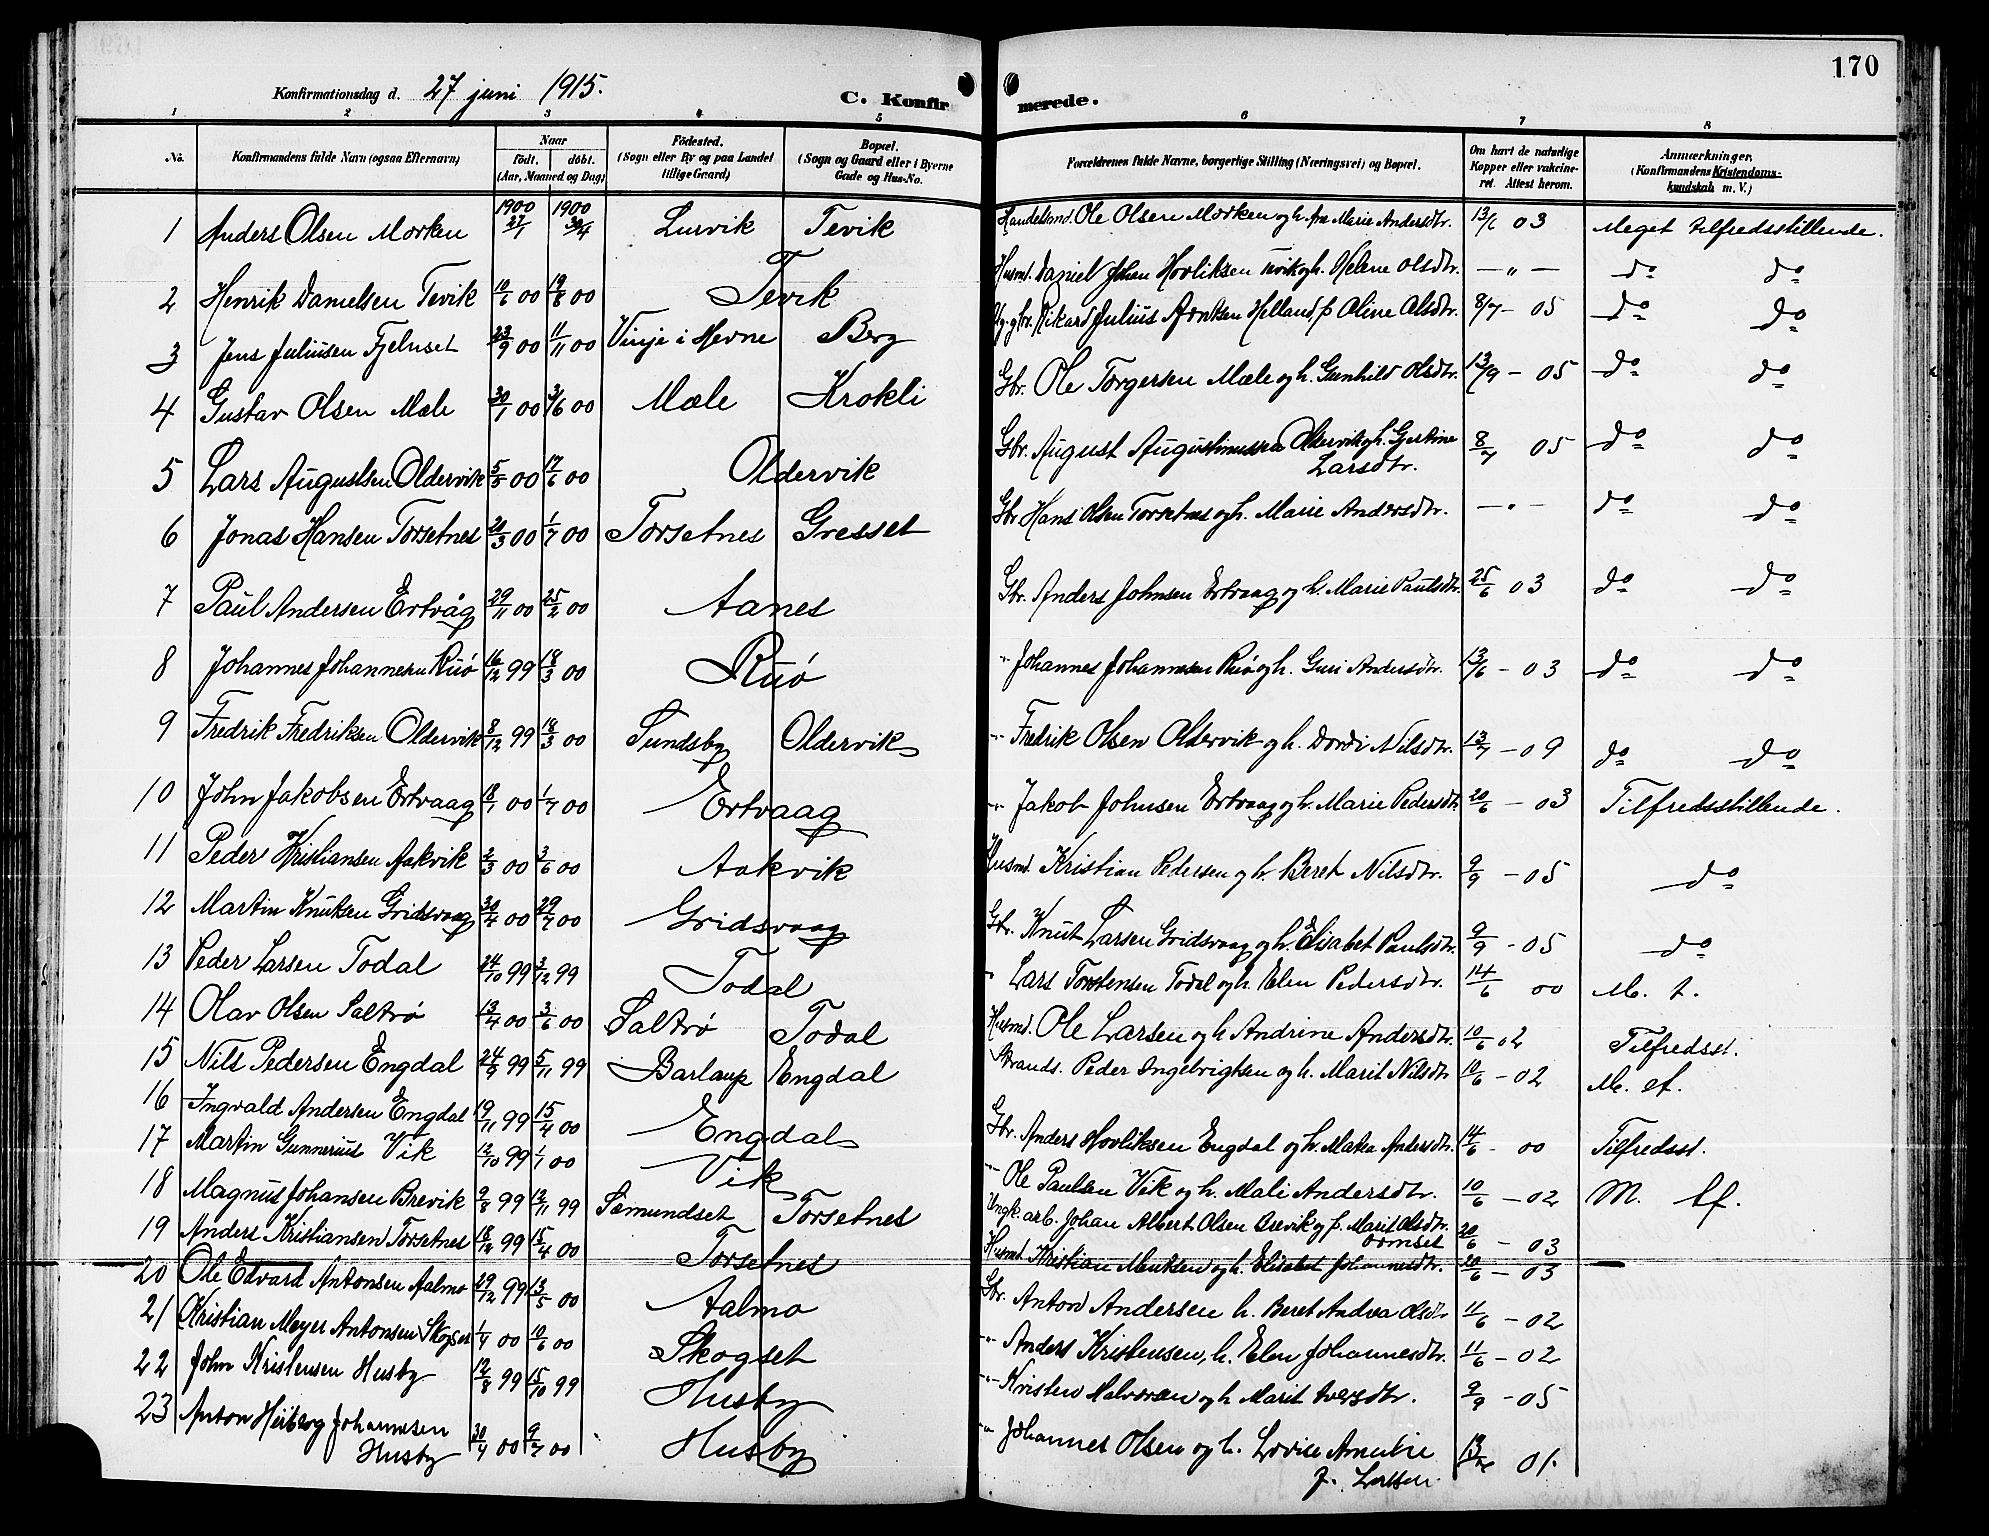 170
Konfirmationsdag d. 27 juni 1915.
C. Konfirmerede.
1 2 3 4 5 6 7 8
No. Konfirmandens fulde Navn (ogsaa Efternavn) Naar født. døbt. (Aar, Maaned og Dag) Fødested. (Sogn eller By og paa Landet tillige Gaard) Bopæl. (Sogn og Gaard eller i Byerne Gade og Hus-No. Forældrenes fulde Navne, borgerlige Stilling (Næringsvei) og Bopæl. Om havt de naturlige Kopper eller vakcineret. Attest herom. Anmærkninger. (Konfirmandens Kristendomskundskab m. V.)
1 Anders Olsen Morken 1900 27/1 1900 Lurvik Tevik Handelsmd. Ole Olsen Morken og h. Ane Marie Andersdtr. 13/6 03 Meget tilfredsstillende.
2 Henrik Danielsen Tevik 10/6 00 19/8 00 Tevik Husmd. Daniel Johan Hovliksen Tevik og h. Helene Olsdtr. — " — do do
3 Jens Juliusen Fjelnset 23/9 00 11/11 00 Vinje i Hevne Berg Rikard Julius Arntsen Helland f Oline Olsdtr. 8/7 – 05 do do
4 Gustav Olsen Mæle 30/1 00 3/6 00 Mæle Krokli Gbr. Ole Torgersen Mæle og h. Gunhild Olsdtr. 13/9 – 05 do do
5 Lars Augustsen Oldervik 5/5 00 17/6 00 Oldervik Gbr. August Augustinussen Oldervik og h. Gjertine Larsdtr. 8/7 05 do do
6 Jonas Hansen Torsetnes 20/3 00 1/7 00 Torsetnes Gresset Gbr Hans Olsen Torsetnes og h. Marie Andersdtr. — " — do do
7 Paul Andersen Ertvåg 29/11 00 25/2 00 Aanes Gbr. Anders Johnsen Ertvaag og h. Marie Paulsdtr. 25/6 03 do do
8 Johannes Johannesen Ruø 16/12 99 18/3 00 Ruø " Johannes Johannesen Ruø og h. Guri Andersdtr. 13/6 – 03 do do
9 Fredrik Fredriksen Oldervik 8/12 99 18/3 00 Sundsby Oldervik " Fredrik Olsen Oldervik og h. Dordi Nilsdtr. 13/7 – 09 do do
10 John Jakobsen Ertvaag 18/1 00 1/7 00 Ertvaag " Jakob Johnsen Ertvaag og h. Marie Pedersdtr 20/6 – 03 Tilfredsstillende.
11 Peder Kristiansen Aakvik 2/3 00 3/6 00 Aakvik Husmd. Kristian Pedersen og h. Beret Nilsdtr. 9/9 – 05 do
12 Martin Knutsen Gridsvaag 30/4 00 29/7 00 Gridsvaag Gbr. Knut Larsen Gridsvaag og h. Elisabet Paulsdtr. 9/9 – 05 do
13 Peder Larsen Todal 24/10 99 3/12 99 Todal " Lars Torstensen Todal og h. Elen Pedersdtr. 14/6 00 M. t.
14 Olav Olsen Saltrø 13/4 00 3/6 00 Saltrø Todal Husmd. Ole Larsen og h Andrine Andersdtr. 10/6 02 Tilfredsst.
15 Nils Pedersen Engdal 24/9 99 5/11 99 Barlaup Engdal Strands. Peder Ingebrigtsen og h. Marit Nilsdtr 10/6 – 02 M. tf.
16 Ingvald Andersen Engdal 19/11 99 15/4 00 Engdal Gbr. Anders Hovliksen Engdal og h. Matea Andersdtr. 14/6 – 00 Tilfredsst.
17 Martin Gunnerius Vik 12/10 99 1/1 00 Vik " Ole Paulsen Vik og h. Mali Andersdtr. 10/6 – 02 M. tf.
18 Magnus Johansen Brevik 9/8 99 12/11 99 Sæmundset Torsetnes Ungk. arb. Johan Albert Olsen Brevik og p. Marit Olsdtr. 20/6 – 03
19 Anders Kristiansen Torsetnes 18/12 99 15/4 00 Torsetnes Husmd Kristian Mentsen og h. Elisabet Johannesdtr. 20/6 – 03
20 Ole Edvard Antonsen Aalmo 29/12 99 13/5 00 Aalmo Gbr. Anton Andersen h. Beret Andrea Olsdtr 11/6 – 02
21 Kristian Meyer Antonsen Skogset 1/4 00 10/6 00 Skogset " Anders Kristensen, h. Elen Johannesdtr. 11/6 – 02
22 John Kristensen Husby 12/8 99 15/10 99 Husby " Kristen Halvorsen og h Marit Iversdtr. 9/9 – 05
23 Anton Heiberg Johannessen Husby 30/4 00 9/7 00 Husby " Johannes Olsen og h. Lovise Amalie J. Larsen 01.